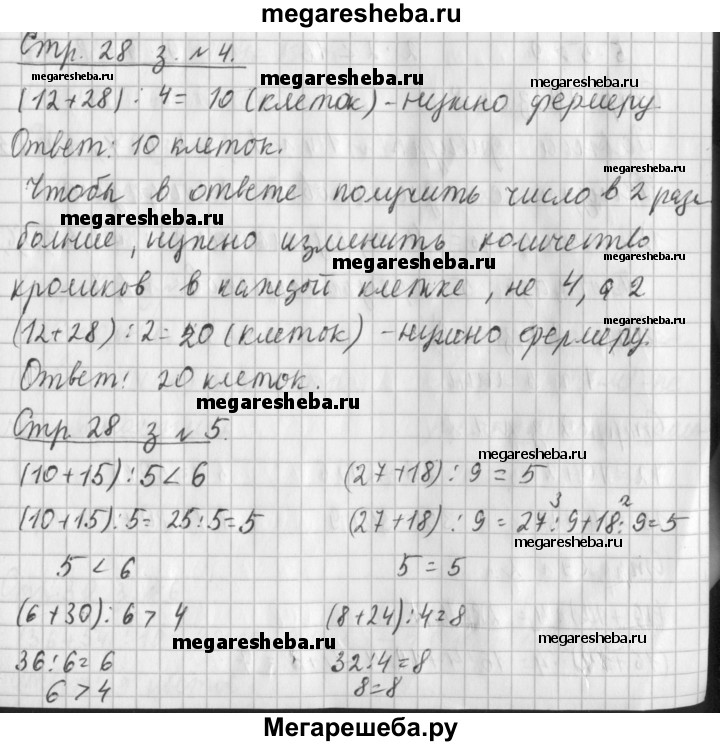 megaresheba.ru
Стр. 28 з. № 4.
megaresheba.ru megaresheba.ru megaresheba.ru
(12+28) : 4 = 10 (клеток) - нужно фермеру.
Ответ: 10 клеток.
megaresheba.ru
Чтобы в ответе получить число в 2 раза
megaresheba.ru
больше, нужно изменить количество
megaresheba.ru megaresheba.ru
кроликов в каждой клетке, не 4, а 2
(12+28) : 2 = 20 (клеток) - нужно фермеру.
megaresheba.ru
Ответ: 20 клеток.
megaresheba.ru
Стр. 28 з № 5.
megaresheba.ru
(10+15) : 5 < 6 (27+18) : 9 = 5
(10+15) : 5 = 25 : 5 = 5 (27+18) : 9 = 27 : 9 + 18 : 9 = 5
3 2
megaresheba.ru
5 < 6 5 = 5
(6+30) : 6 > 4 (8+24) : 4 = 8
megaresheba.ru megaresheba.ru
36 : 6 = 6 32 : 4 = 8
6 > 4 8 = 8
Мегарешеба.ру